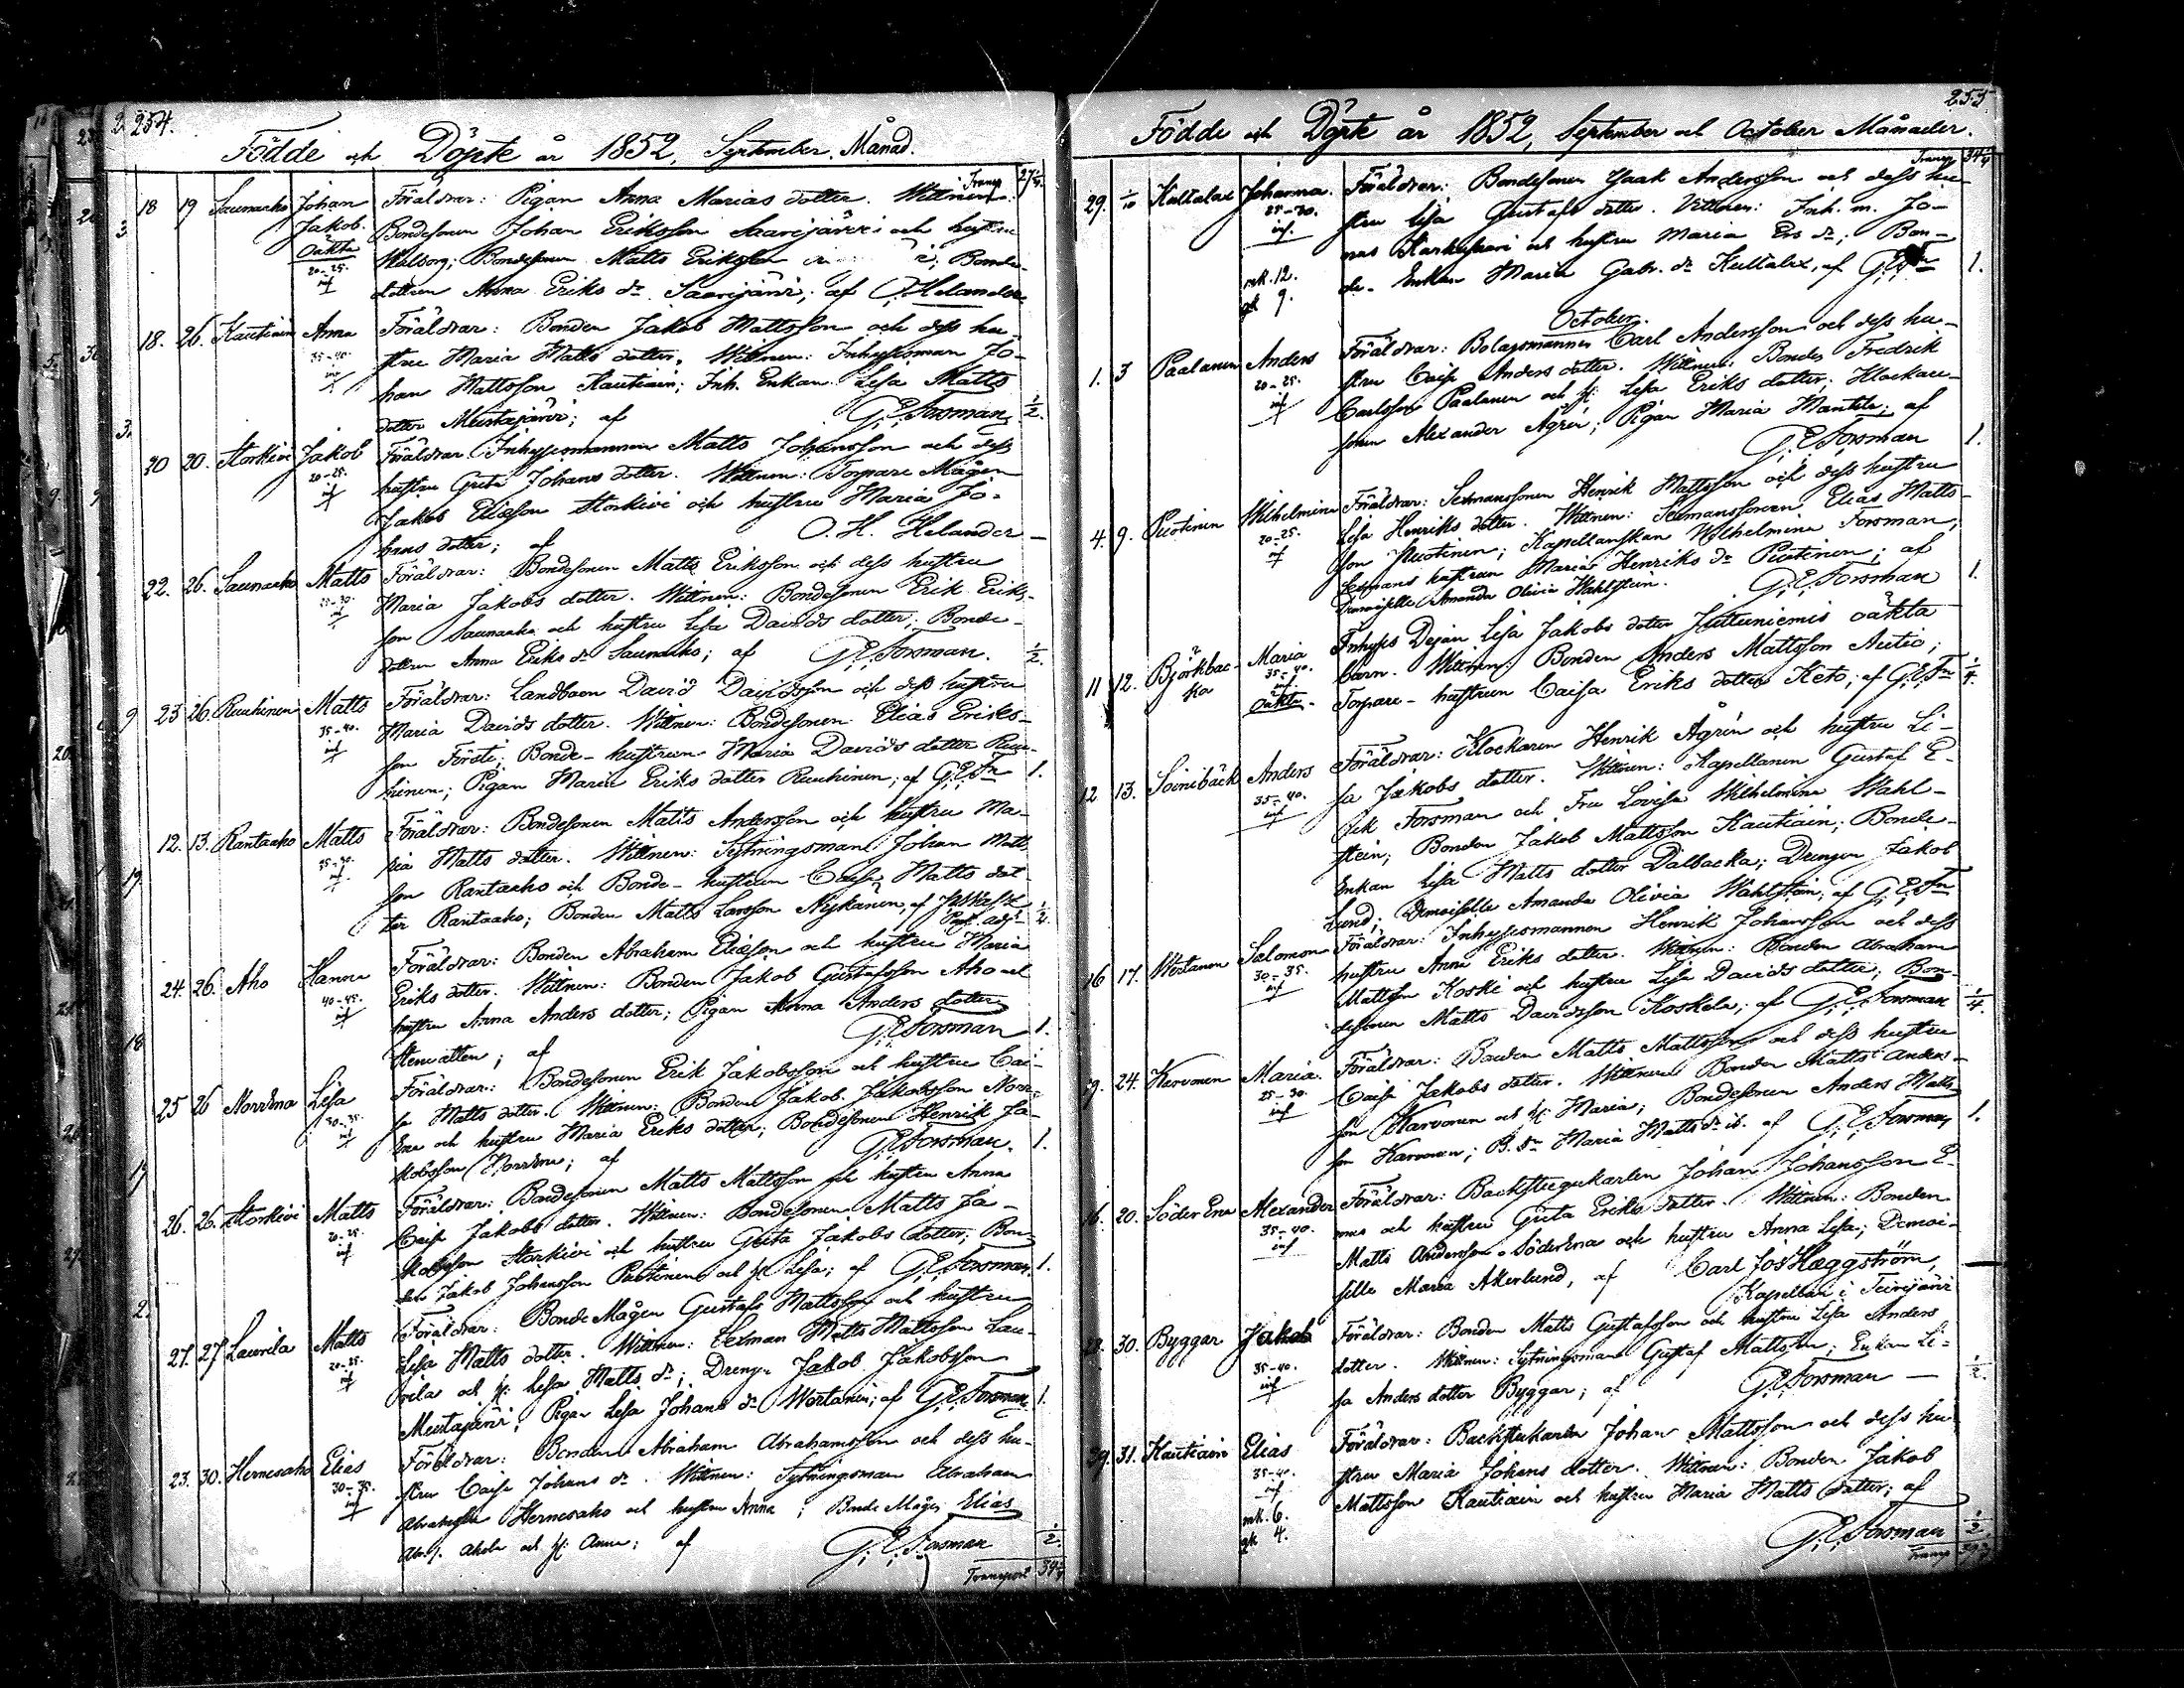 254.
Födde och Döpte år 1852, September Månad.
Transp 27¼.
18 19 Saunaaho Johan Jakob. Oäkta 20-25. inf Föräldrar: Pigan Anna Marias dotter. Wittnen:
Bondesonen Johan Eriksson Saarijärvi och hustru
Walborg; Bondesonen Matts Eriksson; Bonde-
dottren Anna Eriks dr Saarijärvi; af O. Helander
18. 26. Kautiain Anna 35-40. inf Föräldrar: Bonden Jakob Mattsson och dess hu-
stru Maria Matts dotter. Wittnen: Inhysesman Jo-
han Mattsson Kautiain; Inh. Enkan Lisa Matts
dotter Mustajärvi; af G. E. Forsman ½.
20 20. Storkivi Jakob 20-25. inf Föräldrar Inhysesmannen Matts Johansson och dess
hustru Greta Johans dotter. Wittnen: Torpare Mågen
Jakob Eliasson Storkivi och hustru Maria Jo-
hans dotter; af O. H. Helander —
22. 26. Saunaaho Matts 25-30. inf Föräldrar: Bondesonen Matts Eriksson och dess hustru
Maria Jakobs dotter. Wittnen: Bondesonen Erik Eriks-
son Saunaaho och hustru Lisa Davids dotter; Bonde-
dottren Anna Eriks dr Saunaaho; af G. E. Forsman. ½.
23 26. Ruuhinen Matts 35-40. inf Föräldrar: Landboen David Davidsson och dess hustru
Maria Davids dotter. Wittnen: Bondesonen Elias Eriks-
son Försti; Bonde-hustrun Maria Davids dotter Ruu-
hinen; Pigan Maria Eriks dotter Ruuhinen; af G. E. Fn 1.
12. 13. Rantaaho Matts inf Föräldrar: Bondesonen Matts Andersson och hustru Ma-
ria Matts dotter. Wittnen: Sytningsman Johan Matts
son Rantaaho och Bonde-hustrun Caisa Matts dot-
ter Rantaaho; Bonden Matts Larsson Nykänen, af ½.
24. 26. Aho Hanna 40-45. inf Föräldrar: Bonden Abraham Eliasson och hustru Maria
Eriks dotter. Wittnen: Bonden Jakob Gustafsson Aho och
hustru Anna Anders dotter; Pigan Anna Anders dotter
af G. E. Forsman 1.
25 26 NorrEna Lisa 30-35. inf Föräldrar: Bondesonen Erik Jakobsson och hustru Cai-
sa Matts dotter. Wittnen: Bonden Jakob Jakobsson Norr-
Ena och hustru Maria Eriks dotter; Bondesonen Henrik Ja-
kobsson NorrEna; af G. E. Forsman. 1.
26. 26. Storkivi Matts 20-25. inf Föräldrar: Bondesonen Matts Mattsson och hustru Anna
Caisa Jakobs dotter. Wittnen: Bondesonen Matts Ja-
kobsson Storkivi och hustru Greta Jakobs dotter; Bon-
den Jakob Johansson och H. Lisa; af G. E. Forsman. 1.
27. 27 Laurila Matts inf Föräldrar: BondeMågen Gustaf Mattsson och hustru
Lisa Matts dotter. Wittnen: Matts Mattsson Lau-
rila och H. Lisa Matts dr; Drengen Jakob Jakobsson
Mustajärvi; Pigan Lisa Johans dr Wertanen; af G. E. Forsman. 1.
23. 30. Hernesaho Elias 30-35. inf Föräldrar: Bonden Abraham Abrahamsson och dess hu-
stru Caisa Johans dr. Wittnen: Sytningsman Abraham
Abrahamsson Hernesaho och hustru Anna; Bonde Mågen Elias
och H. Anna; af G. E. Forsman ½.
Transport 34¼
255
Födde och Döpte år 1852, September och October Månader.
Transp 34¼
29. 1/10 Kultalax Johanna. 25-30. inf Föräldrar: Bondesonen Isaak Andersson och dess hu-
stru Lisa Gustafs dotter. Vittnen: Inh. m. Jo-
nas och hustru Maria Ers dr; Bon-
de-Enkan Maria Gabr. dr Kultalax, af G. E. Fn 1.
mk. 12.
qk 9.
October.
1. 3 Paalanen Anders 20-25. inf Föräldrar: Bolagsmannen Carl Andersson och dess hu-
stru Caisa Anders dotter. Wittnen: Bonden Fredrik
Carlsson Paalanen och H. Lisa Eriks dotter; Klockare-
sonen Alexander Ågrén; Pigan Maria Mantela; af
G. E. Forsman 1.
4. 9. Puotinen Wilhelmina 20-25. inf Föräldrar: Sexmanssonen Henrik Mattsson och dess hustru
Lisa Henriks dotter. Wittnen: Sexmanssonen Elias Matts-
son Puotinen; Kapellanskan Wilhelmina Forsman,
Sexmans hustrun Maria Henriks dr Puotinen; af
Demoiselle Amanda Olivia Wahlstein. G. E. Forsman 1.
11 12. Björkbac-ka Maria 35-40. inf. Oäkta. Inhyses Dejan Lisa Jakobs dotter Juttuniemis oäkta
barn. Wittnen: Bonden Anders Mattsson Autio;
Torpare-hustrun Caisa Eriks dotter Keto; af G. E. Fn ¼.
12 13. Soinibäck Anders 35-40. inf Föräldrar: Klockaren Henrik Ågrén och hustru Li-
sa Jakobs dotter. Wittnen: Kapellanen Gustaf E-
rik Forsman och Fru Lovisa Wilhelmina Wahl-
stein; Bonden Jakob Mattsson Kautiain; Bonde-
Enkan Lisa Matts dotter Dalbacka; Drengen Jakob
Lund; Demoiselle Amanda Olivia Wahlstein; af G. E. Fn
16 17. Wertanen Salomon 30-35. inf Föräldrar: Inhysesmannen Henrik Johansson och dess
hustru Anna Eriks dotter. Wittnen: Bonden Abraham
Mattsson Koski och hustru Lisa Davids dotter; Bon-
desonen Matts Davidsson Koskela; af G. E. Forsman ¼.
19. 24. Karvonen Maria. 25-30. inf Föräldrar: Bonden Matts Mattsson och dess hustru
Caisa Jakobs dotter. Wittnen: Bonden Matts Anders-
son Karvonen och H. Maria; Bondesonen Anders Matts-
son Karvonen; B. dr Maria Matts dr ib. af G. E. Forsman 1.
16. 20. SöderEna Alexander 35-40. inf Föräldrar: Backstugukarlen Johan Johansson E-
nas och hustru Greta Eriks dotter. Wittnen: Bonden
Matts Andersson SöderEna och hustru Anna Lisa; Demoi-
selle Maria Åkerlund, af Carl Jos Hæggström,
Kapellan i Perho —
28. 30. Byggar Jakob 35-40. inf Föräldrar: Bonden Matts Gustafsson och hustru Lisa Anders
dotter. Wittnen: Sytningsman Gustaf Mattsson; Enkan Li-
sa Anders dotter Byggar; af G. E. Forsman — ½.
29. 31. Kautiain Elias 35-40. inf Föräldrar: Backstukarlen Johan Mattsson och dess hu-
stru Maria Johans dotter. Wittnen: Bonden Jakob
Mattsson Kautiain och hustru Maria Matts dotter; af
mk. 6.
qk 4.
G. E. Forsman ½.
Transp